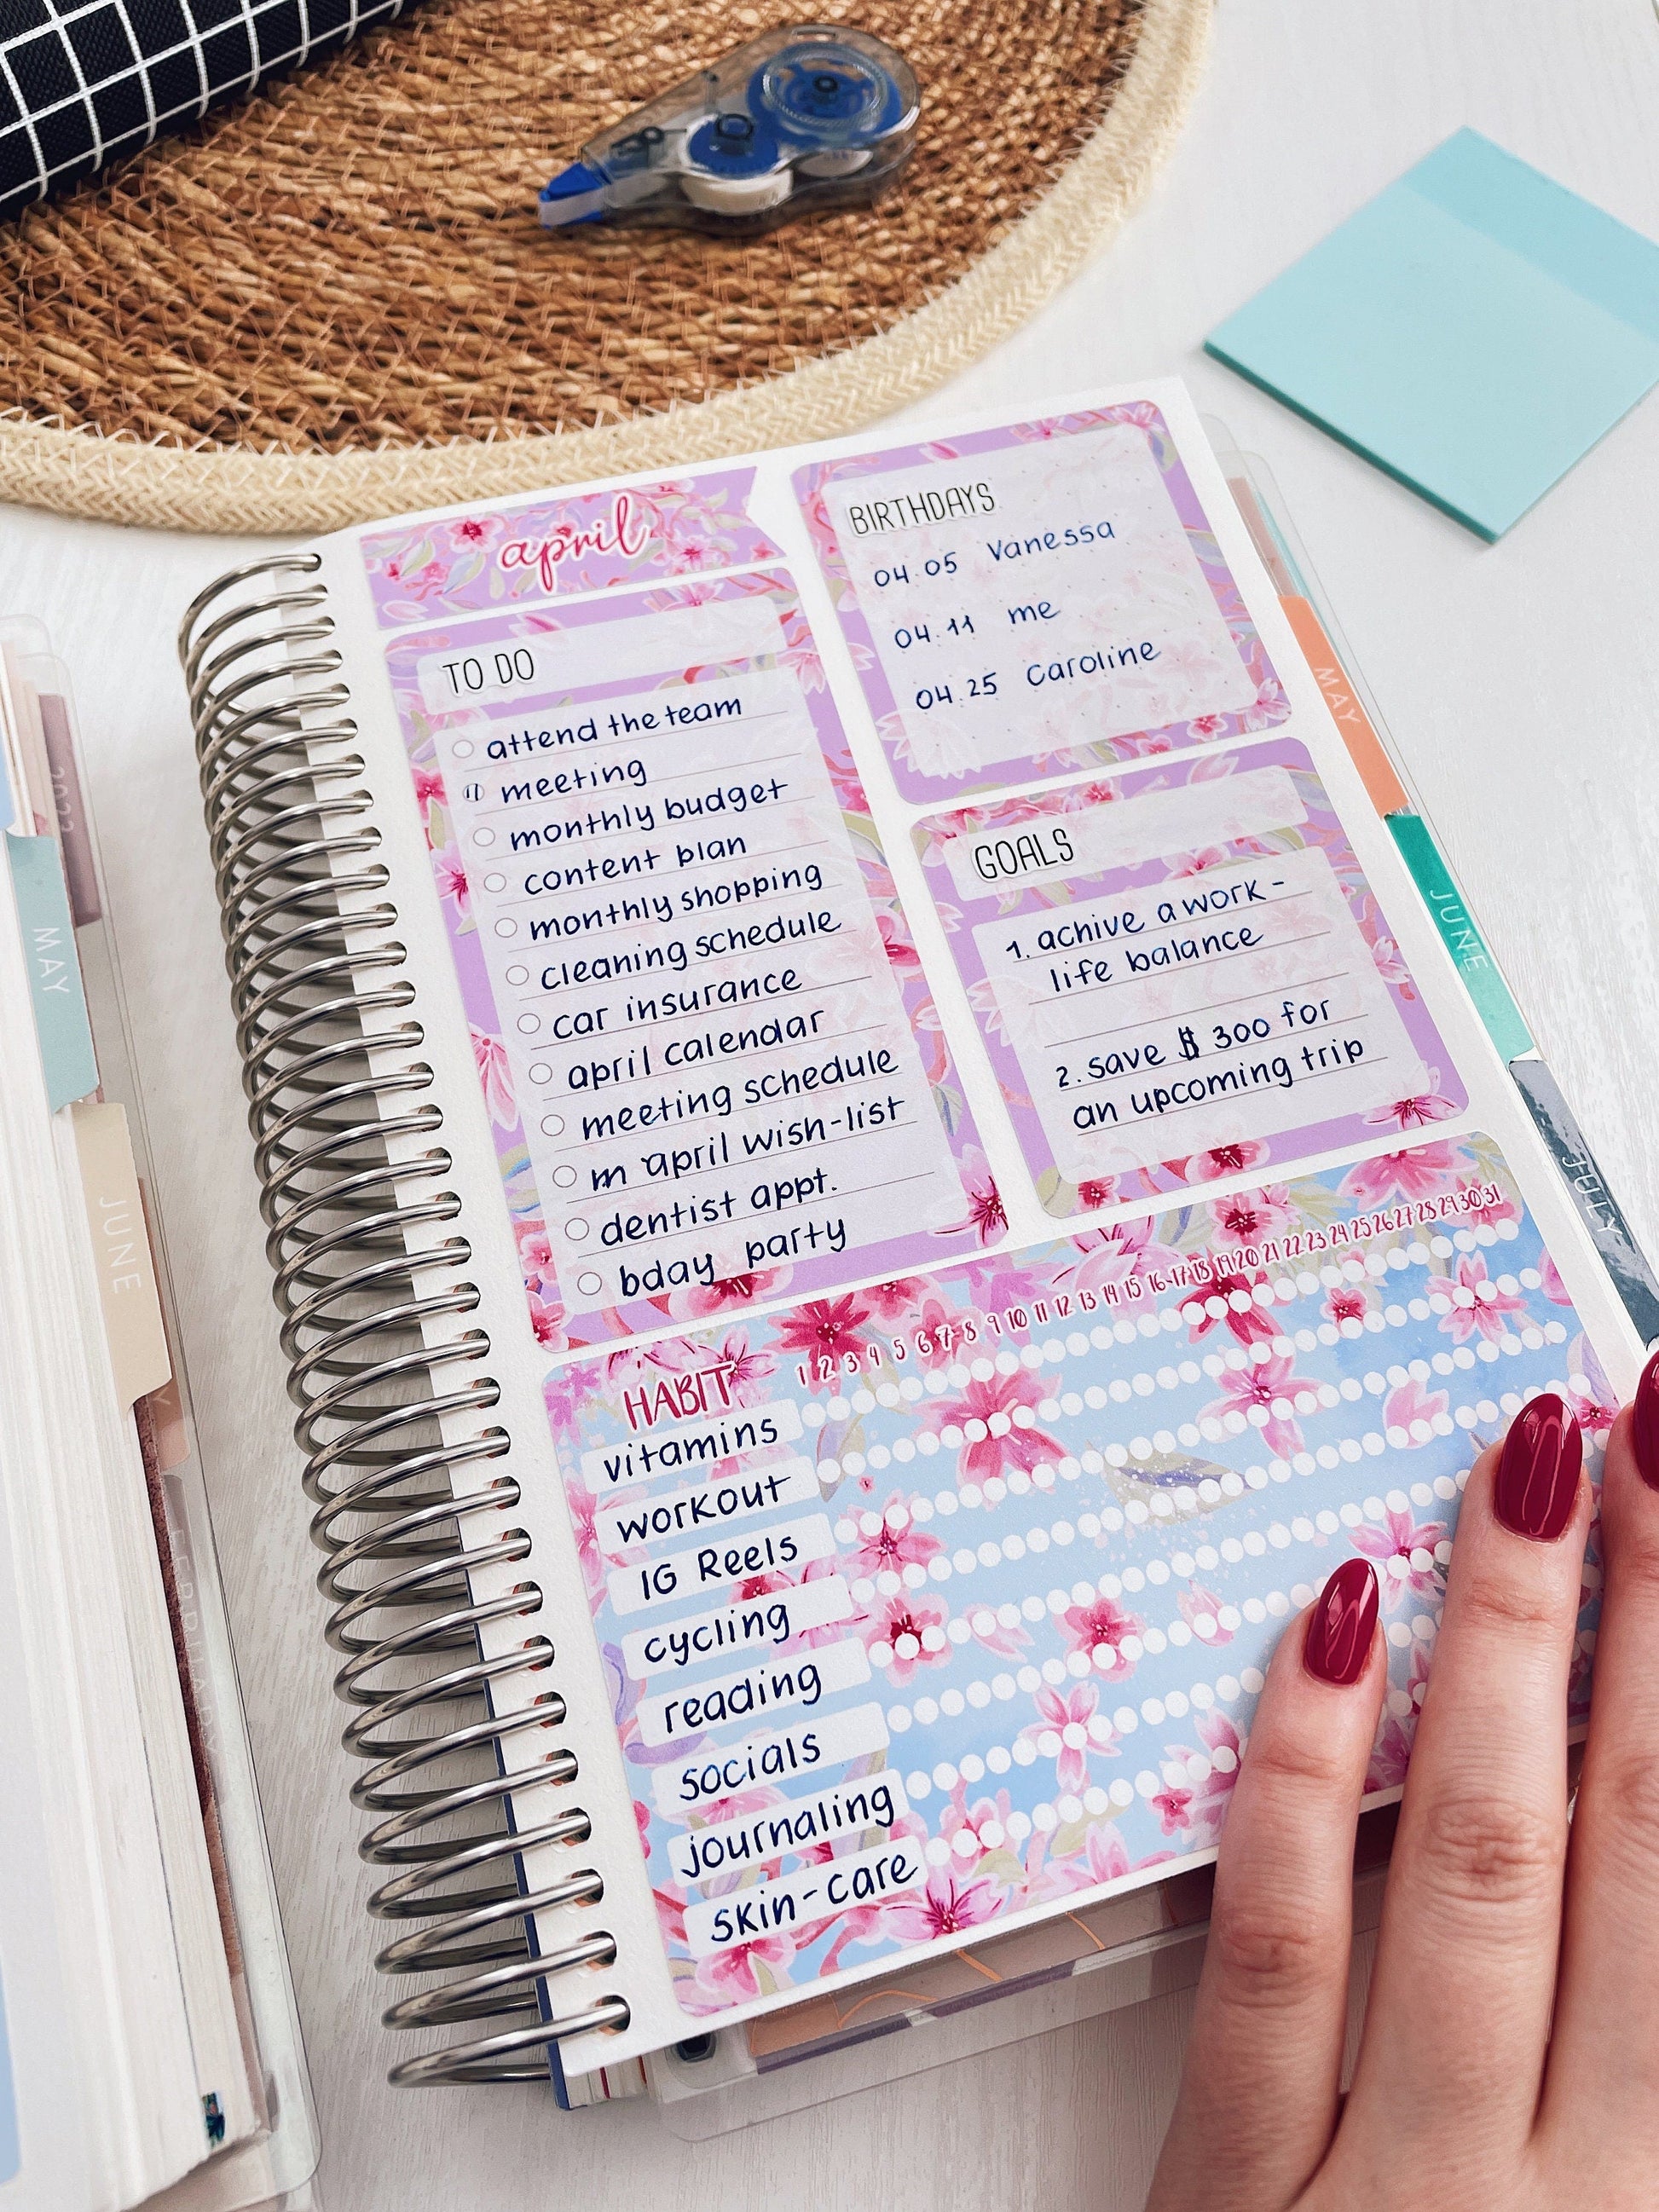 april
TO DO
attend the team
meeting
monthly budget
content plan
monthly shopping
cleaning schedule
car insurance
april calendar
meeting schedule
m april wish-list
dentist appt.
bday party
BIRTHDAYS
04.05 Vanessa
04.11 me
04.25 Caroline
GOALS
1. achive a work-
life balance
2. save $ 300 for
an upcoming trip
HABIT
1 2 3 4 5 6 7 8 9 10 11 12 13 14 15 16 17 18 19 20 21 22 23 24 25 26 27 28 29 30 31
vitamins
workout
IG Reels
cycling
reading
socials
journaling
skin-care
MAY
JUNE
JULY
2023
MAY
JUNE
FEBRUARY